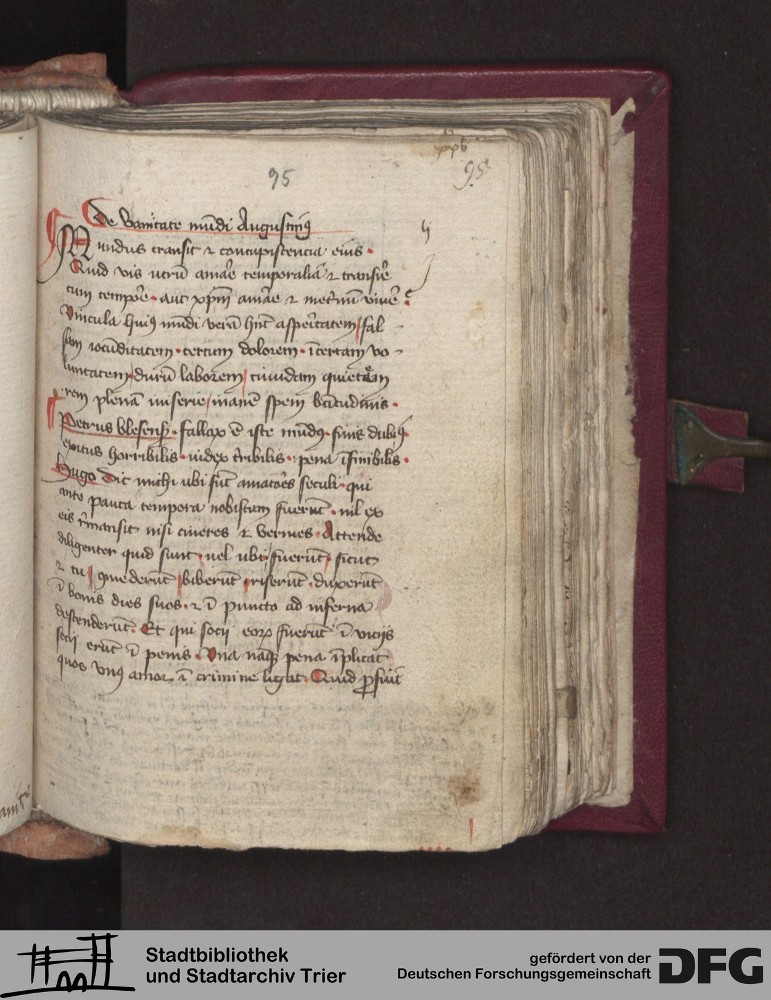 95
95
De vanitate mūdi Augustinꝰ
Mundus transit ⁊ concupiscencia eius ·
Quid vis utrū amāe temporalia ⁊ transire
cum tempōe · aut xp̄m amāe ⁊ inet̄nū vivē ?
Vincula huiꝰ mūdi verā hn̄t asperitatem / fal
sam iocūditatem · certum dolorem · īcertam vo
luntatem / durū laborem / timidam quietem
rem plenā miserie / inanē spem btitudinis ·
Petrus blesensꝭ · fallax ē iste mūdꝰ · finis dubiꝰ ·
exitus horribilis · iudex tribilis · pena īfinibilis ·
Hugo Dic michi ubi sūt amatoēs seculi · qui
ante pauca tempora nobiscum fuerūt · nil ex
eis r̄mansit nisi cineres ⁊ vermes · Attende
diligenter quid sunt · vel ubi fuerūt · sicut
⁊ tu / ꝯmederūt / biberūt · riserūt · duxerūt
ī bonis dies suos · ⁊ ī puncto ad inferna
descenderūt · Et qui socij eorꝝ fuerūt ī vicijs
socij erūt ī penis · Vna nāqꝫ pena īplicat
quos vnꝰ amor ī crimine ligat · Quid ꝓfuit
Stadtbibliothek
und Stadtarchiv Trier
gefördert von der
Deutschen Forschungsgemeinschaft
DFG